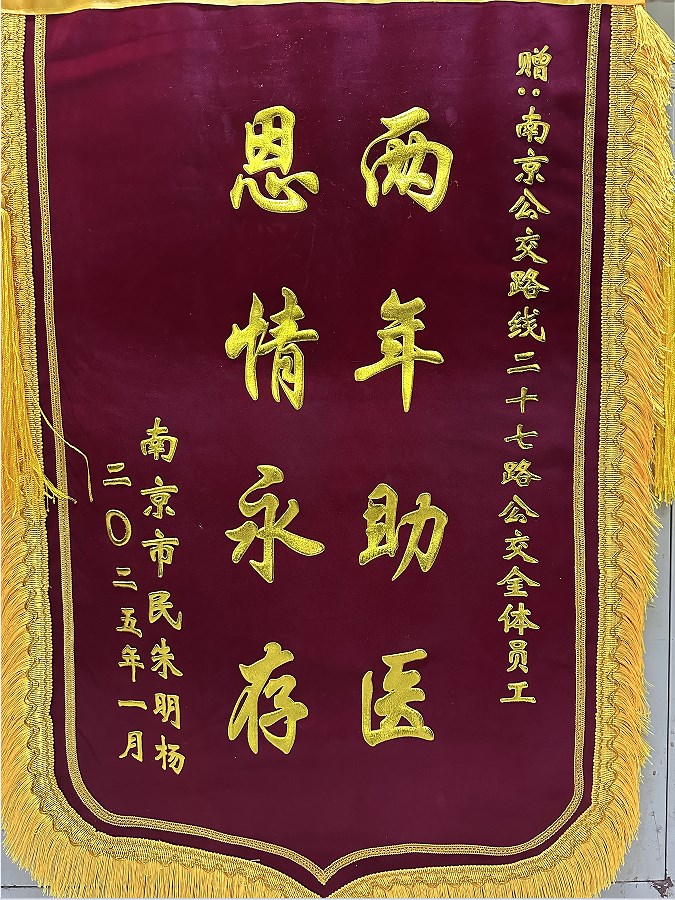 赠：南京公交路线二十七路公交全体员工
两年助医
恩情永存
南京市民朱明杨
二〇二五年一月